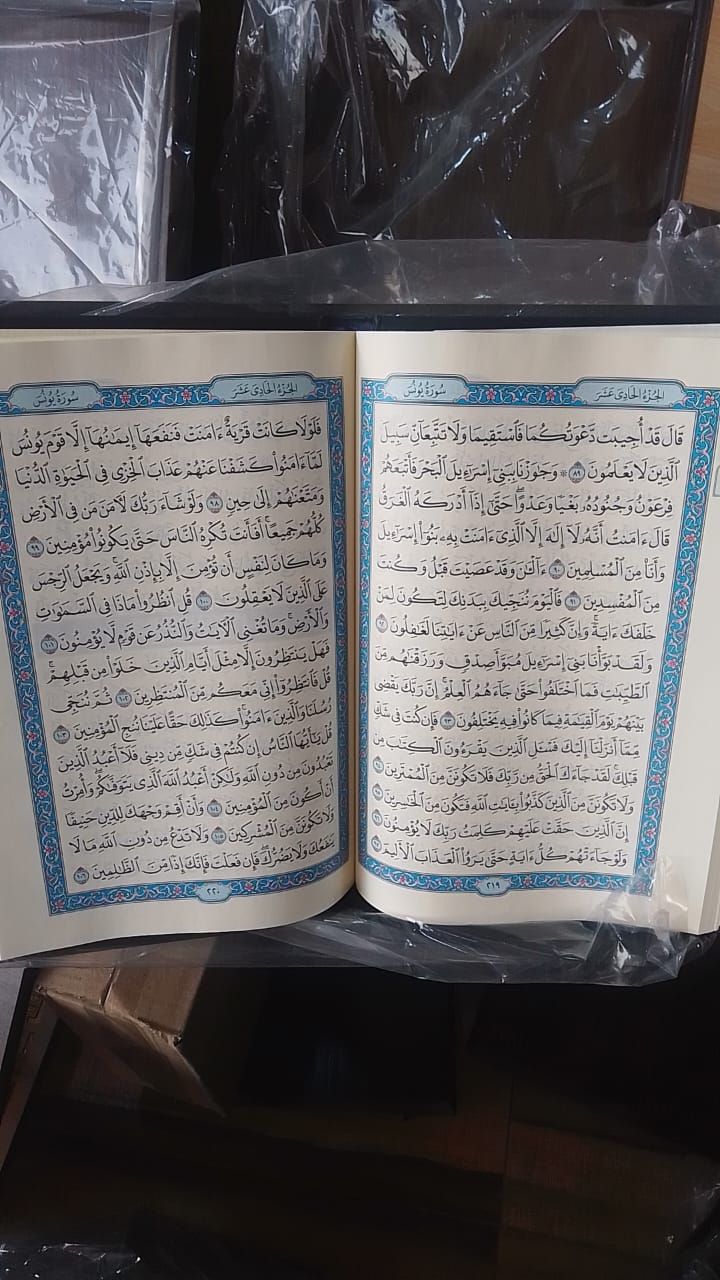 الجُزْءُ الحَادِى عَشَرَ
سُورَةُ يُونُسَ
قَالَ قَدْ أُجِيبَت دَّعْوَتُكُمَا فَٱسْتَقِيمَا وَلَا تَتَّبِعَآنِّ سَبِيلَ
ٱلَّذِينَ لَا يَعْلَمُونَ ٨٩ ۞ وَجَٰوَزْنَا بِبَنِىٓ إِسْرَٰٓءِيلَ ٱلْبَحْرَ فَأَتْبَعَهُمْ
فِرْعَوْنُ وَجُنُودُهُۥ بَغْيًا وَعَدْوًا ۖ حَتَّىٰٓ إِذَآ أَدْرَكَهُ ٱلْغَرَقُ
قَالَ ءَامَنتُ أَنَّهُۥ لَآ إِلَٰهَ إِلَّا ٱلَّذِىٓ ءَامَنَتْ بِهِۦ بَنُوٓا۟ إِسْرَٰٓءِيلَ
وَأَنَا۠ مِنَ ٱلْمُسْلِمِينَ ٩٠ ءَآلْـَٰٔنَ وَقَدْ عَصَيْتَ قَبْلُ وَكُنتَ
مِنَ ٱلْمُفْسِدِينَ ٩١ فَٱلْيَوْمَ نُنَجِّيكَ بِبَدَنِكَ لِتَكُونَ لِمَنْ
خَلْفَكَ ءَايَةً ۚ وَإِنَّ كَثِيرًا مِّنَ ٱلنَّاسِ عَنْ ءَايَٰتِنَا لَغَٰفِلُونَ ٩٢
وَلَقَدْ بَوَّأْنَا بَنِىٓ إِسْرَٰٓءِيلَ مُبَوَّأَ صِدْقٍ وَرَزَقْنَٰهُم مِّنَ
ٱلطَّيِّبَٰتِ فَمَا ٱخْتَلَفُوا۟ حَتَّىٰ جَآءَهُمُ ٱلْعِلْمُ ۚ إِنَّ رَبَّكَ يَقْضِى
بَيْنَهُمْ يَوْمَ ٱلْقِيَٰمَةِ فِيمَا كَانُوا۟ فِيهِ يَخْتَلِفُونَ ٩٣ فَإِن كُنتَ فِى شَكٍّ
مِّمَّآ أَنزَلْنَآ إِلَيْكَ فَسْـَٔلِ ٱلَّذِينَ يَقْرَءُونَ ٱلْكِتَٰبَ مِن
قَبْلِكَ ۚ لَقَدْ جَآءَكَ ٱلْحَقُّ مِن رَّبِّكَ فَلَا تَكُونَنَّ مِنَ ٱلْمُمْتَرِينَ ٩٤
وَلَا تَكُونَنَّ مِنَ ٱلَّذِينَ كَذَّبُوا۟ بِـَٔايَٰتِ ٱللَّهِ فَتَكُونَ مِنَ ٱلْخَٰسِرِينَ ٩٥
إِنَّ ٱلَّذِينَ حَقَّتْ عَلَيْهِمْ كَلِمَتُ رَبِّكَ لَا يُؤْمِنُونَ ٩٦
وَلَوْ جَآءَتْهُمْ كُلُّ ءَايَةٍ حَتَّىٰ يَرَوُا۟ ٱلْعَذَابَ ٱلْأَلِيمَ ٩٧
٢١٩
الجُزْءُ الحَادِى عَشَرَ
سُورَةُ يُونُسَ
فَلَوْلَا كَانَتْ قَرْيَةٌ ءَامَنَتْ فَنَفَعَهَآ إِيمَٰنُهَآ إِلَّا قَوْمَ يُونُسَ
لَمَّآ ءَامَنُوا۟ كَشَفْنَا عَنْهُمْ عَذَابَ ٱلْخِزْىِ فِى ٱلْحَيَوٰةِ ٱلدُّنْيَا
وَمَتَّعْنَٰهُمْ إِلَىٰ حِينٍ ٩٨ وَلَوْ شَآءَ رَبُّكَ لَءَامَنَ مَن فِى ٱلْأَرْضِ
كُلُّهُمْ جَمِيعًا ۚ أَفَأَنتَ تُكْرِهُ ٱلنَّاسَ حَتَّىٰ يَكُونُوا۟ مُؤْمِنِينَ ٩٩
وَمَا كَانَ لِنَفْسٍ أَن تُؤْمِنَ إِلَّا بِإِذْنِ ٱللَّهِ ۚ وَيَجْعَلُ ٱلرِّجْسَ
عَلَى ٱلَّذِينَ لَا يَعْقِلُونَ ١٠٠ قُلِ ٱنظُرُوا۟ مَاذَا فِى ٱلسَّمَٰوَٰتِ
وَٱلْأَرْضِ ۚ وَمَا تُغْنِى ٱلْءَايَٰتُ وَٱلنُّذُرُ عَن قَوْمٍ لَّا يُؤْمِنُونَ ١٠١
فَهَلْ يَنتَظِرُونَ إِلَّا مِثْلَ أَيَّامِ ٱلَّذِينَ خَلَوْا۟ مِن قَبْلِهِمْ ۚ
قُلْ فَٱنتَظِرُوٓا۟ إِنِّى مَعَكُم مِّنَ ٱلْمُنتَظِرِينَ ١٠٢ ثُمَّ نُنَجِّى
رُسُلَنَا وَٱلَّذِينَ ءَامَنُوا۟ ۚ كَذَٰلِكَ حَقًّا عَلَيْنَا نُنجِ ٱلْمُؤْمِنِينَ ١٠٣
قُلْ يَٰٓأَيُّهَا ٱلنَّاسُ إِن كُنتُمْ فِى شَكٍّ مِّن دِينِى فَلَآ أَعْبُدُ ٱلَّذِينَ
تَعْبُدُونَ مِن دُونِ ٱللَّهِ وَلَٰكِنْ أَعْبُدُ ٱللَّهَ ٱلَّذِى يَتَوَفَّىٰكُمْ ۖ وَأُمِرْتُ
أَنْ أَكُونَ مِنَ ٱلْمُؤْمِنِينَ ١٠٤ وَأَنْ أَقِمْ وَجْهَكَ لِلدِّينِ حَنِيفًا
وَلَا تَكُونَنَّ مِنَ ٱلْمُشْرِكِينَ ١٠٥ وَلَا تَدْعُ مِن دُونِ ٱللَّهِ مَا لَا
يَنفَعُكَ وَلَا يَضُرُّكَ ۖ فَإِن فَعَلْتَ فَإِنَّكَ إِذًا مِّنَ ٱلظَّٰلِمِينَ ١٠٦
٢٢٠